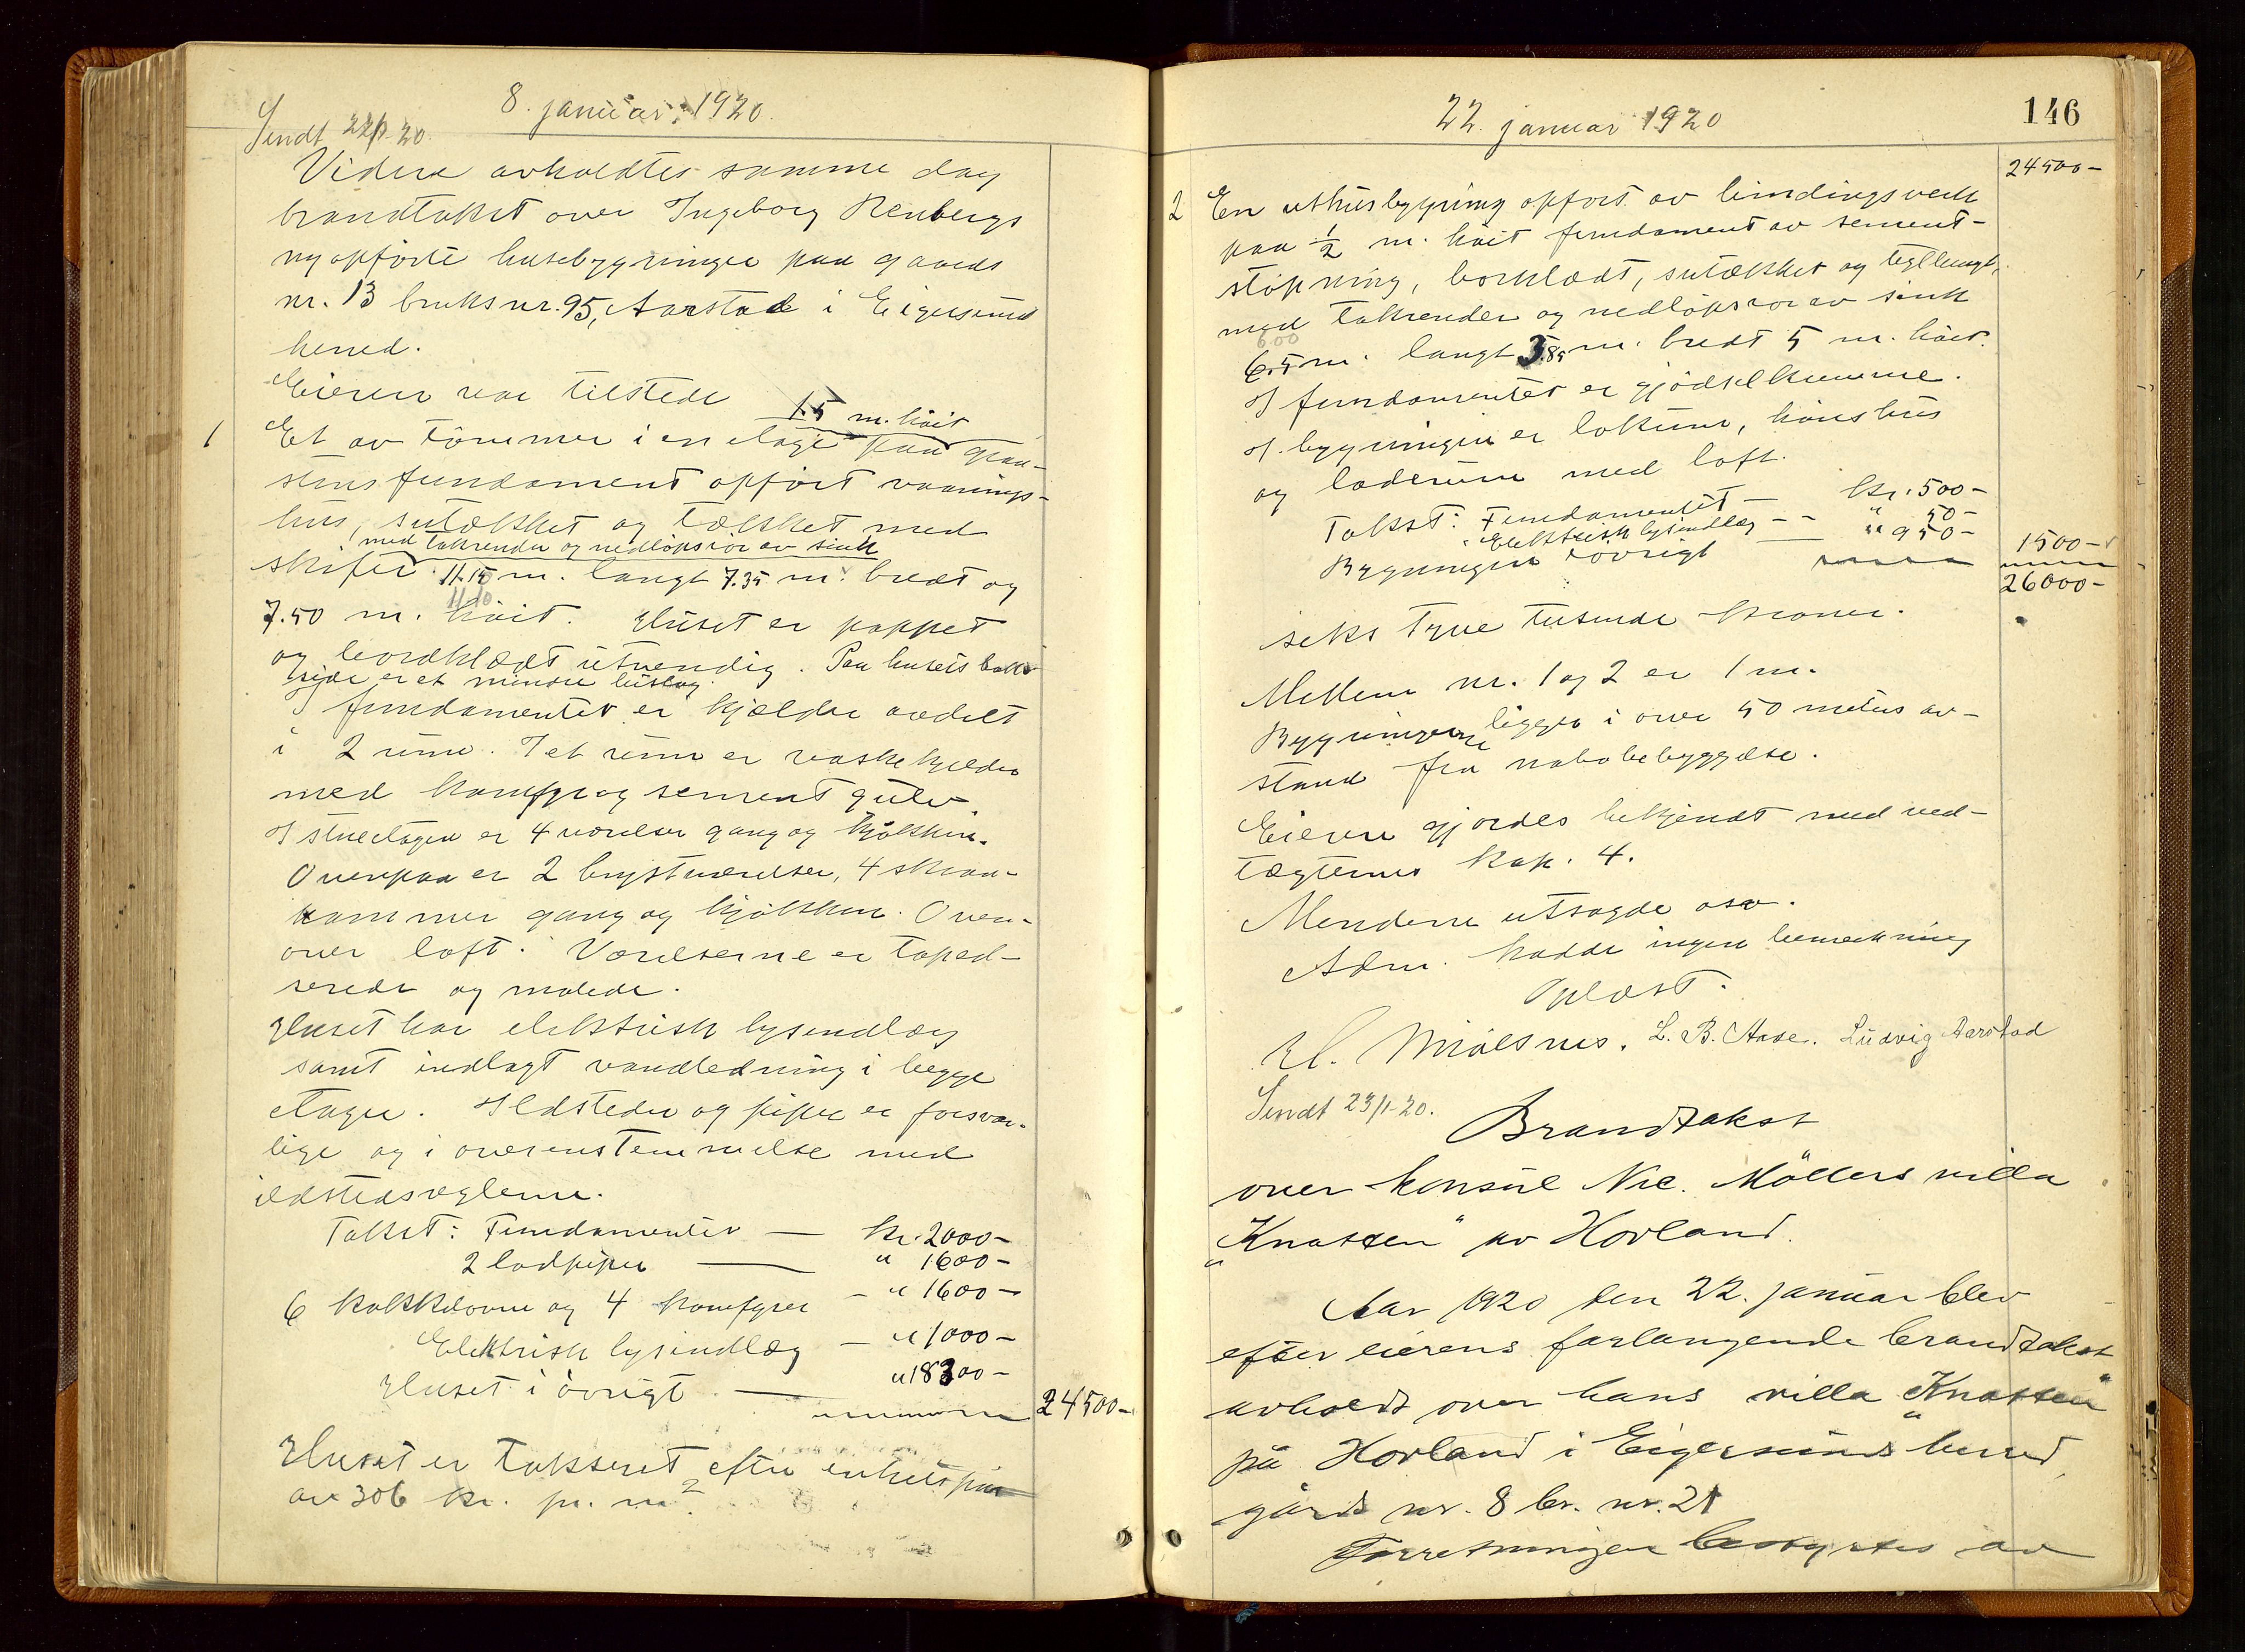 8. januar 1920.
Sendt 22/1-20.
Videre avholdtes samme dag
brandtakst over Ingeborg Renbergs
nyopførte husebygninger paa gaards
nr. 13 bruksnr. 95, Aarstad i Eigersund
herred.
Eieren var tilstede
1.5 m. höit
1 Et av tömmer i en etage paa graa-
stensfundament opfört vaanings-
hus, sutækket og tækket med
med takrender og nedlöpsrör av sink
skifer 11.15 m. langt 7.35 m. bredt og
11.10
7.50 m. höit. Huset er pappet
og bordklædt utvendig. Paa husets bak-
side er et mindre bislag.
I fundamentet er kjælder avdelt
i 2 rum. I et rum er vaskekjelder
med komfyr og sement gulv.
I stueetagen er 4 værelser gang og kjökken.
Ovenpaa er 2 brystværelser, 4 skraa-
kammer gang og kjökken. Oven-
over loft. Værelserne er taped-
serede og malede.
Huset har elektrisk lysindlæg
samt indlagt vandledning i begge
etager. Ildsteder og piper er forsvar-
lige og i overenstemmelse med
ildstedsreglerne.
Takst: Fundamentet — kr. 2000-
2 lodpiper — " 1600-
6 kakkelovne og 4 komfyrer - " 1600-
Elektrisk lysindlæg — " 1000-
Huset i övrigt — " 18300-
24500-
Huset er takseret efter enhetspris
av 306 kr. pr. m²
22. januar 1920
146
24500-
2 En uthusbygning opfört av bindingsverk
paa ½ m. höit fundament av sement-
stöpning, bordklædt, sutækket og teglhengt,
med takrender og nedlöpsrör av sink
6.00
6.5 m. langt 3.85 m. bredt 5 m. höit.
I fundamentet er gjödselkumme.
I bygningen er lokum, hönshus
og laderum med loft.
Takst: Fundamentet — kr. 500-
" Elektrisk lysindlæg - - " 50-
Bygningen iövrigt — " 950-
1500-
26000-
seks tyve tusende kroner.
Mellem nr. 1 og 2 er 1 m.
Bygningerne ligger i over 50 meters av-
stand fra nabobebyggelse.
Eieren gjordes bekjendt med ved-
tægternes kap. 4.
Mendene utsagde osv.
Adm. hadde ingen bemerkning
Oplæst.
H. Mjölsnes. L. B. Aase. Ludvig Aarstad
Sendt 23/1-20.
Brandtakst
over konsul Nic. Möllers villa
"Knatten" av Hovland.
Aar 1920 den 22. januar blev
efter eierens forlangende brandtakst
avholdt over hans villa "Knatten"
på Hovland i Eigersunds herred,
gårds nr. 8 br. nr. 21
Forretningen bestyrtes av